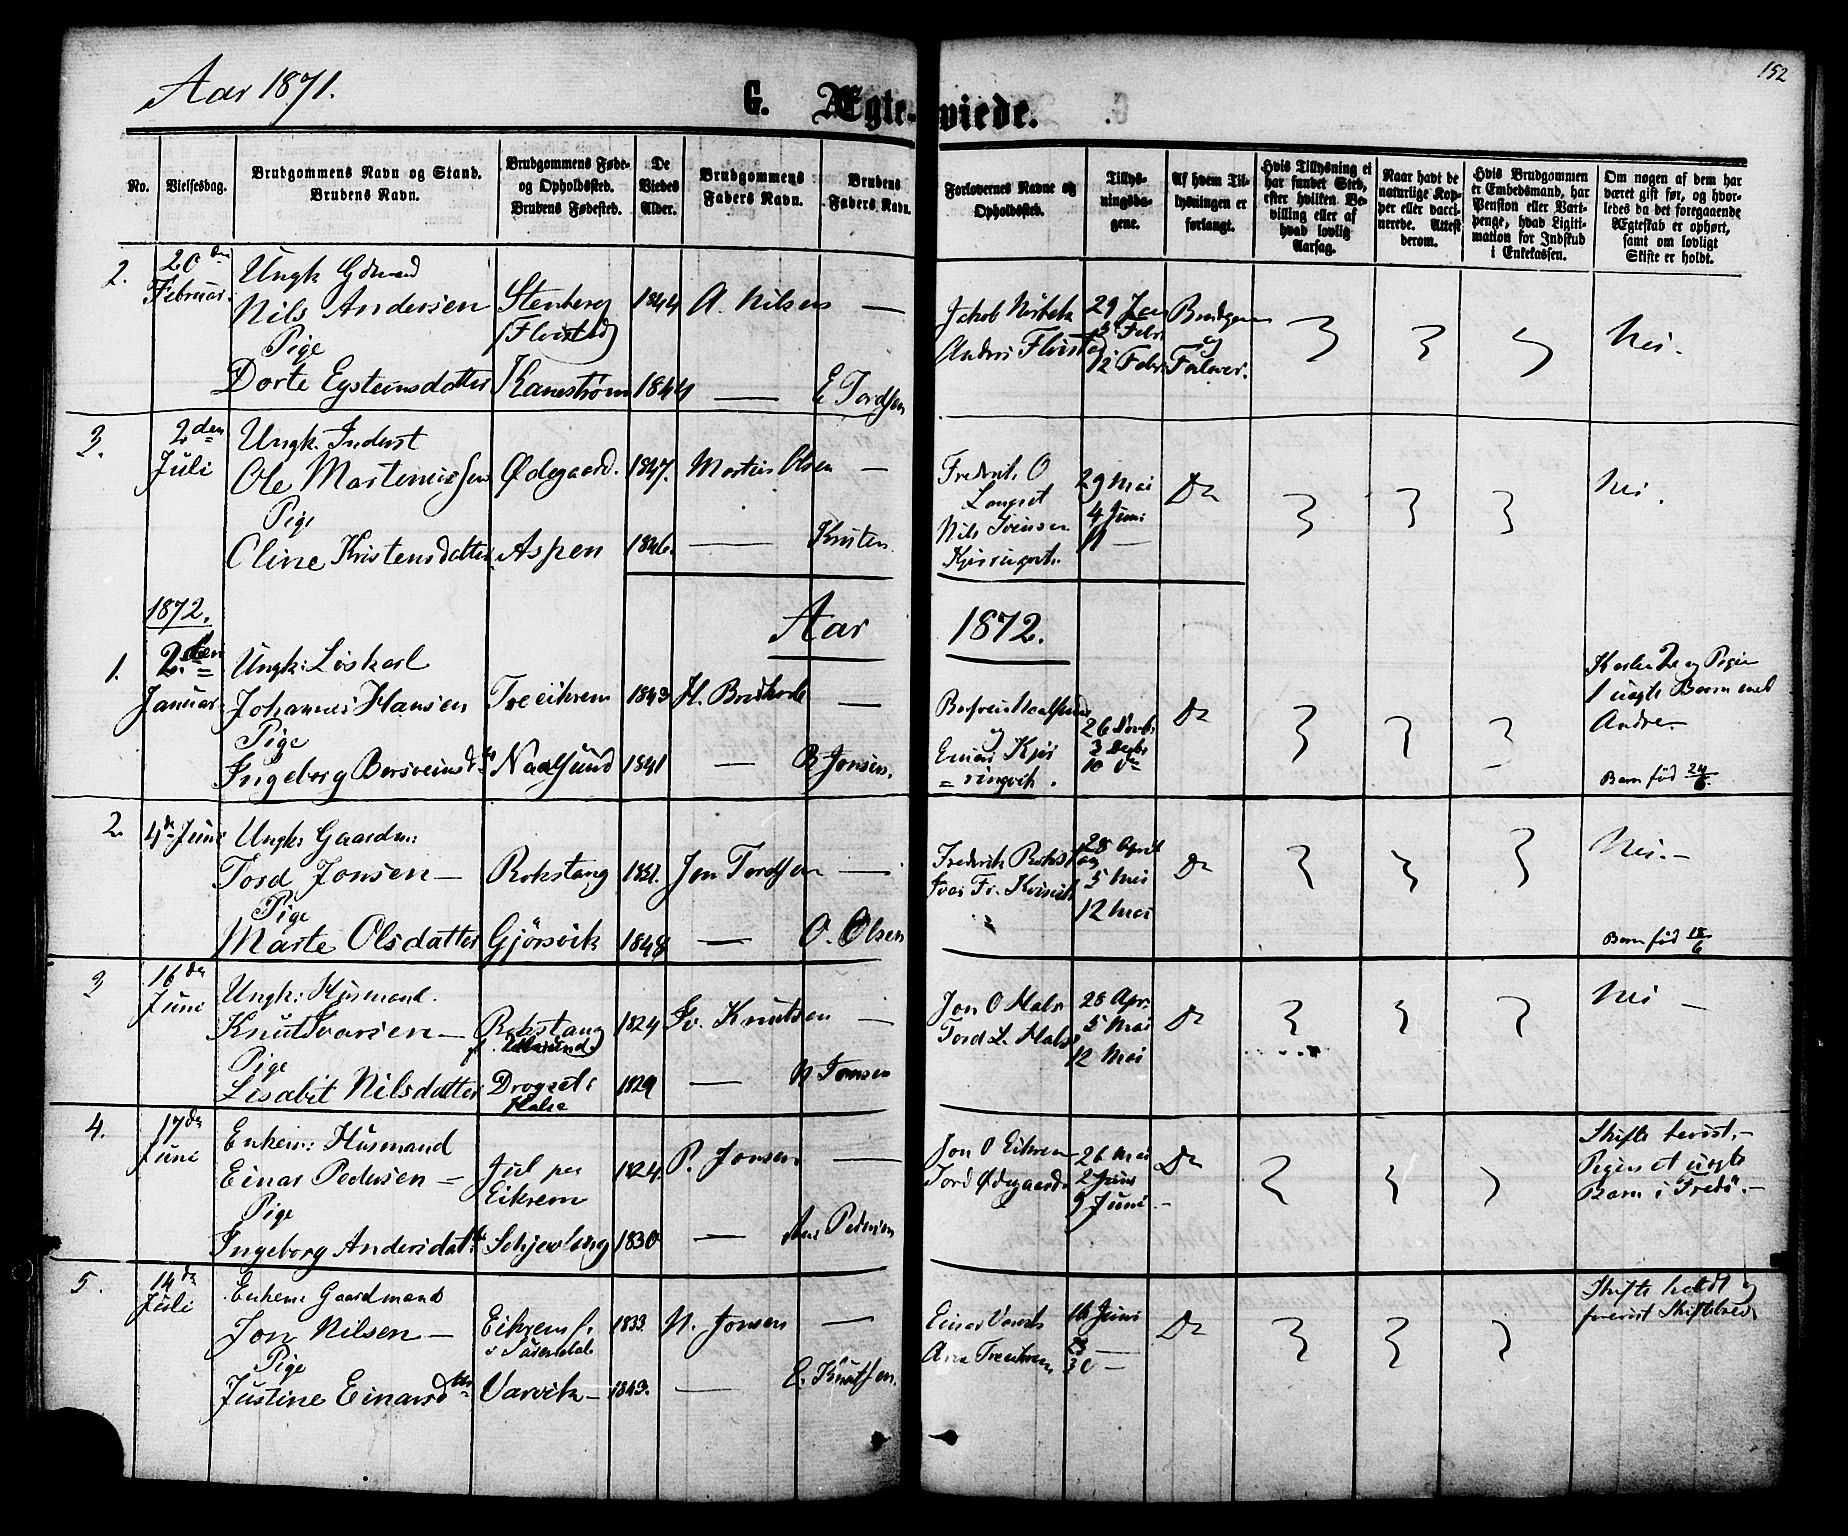 Aar 1871.
152
G. Ægte- viede.
No.
Vielsesdag.
Brudgommens Navn og Stand.
Brudens Navn.
Brudgommens Føde-
og Opholdssted.
Brudens Fødested.
De
Viedes
Alder.
Brudgommens
Faders Navn.
Brudens
Faders Navn.
Forlovernes Navne og
Opholdssted.
Tillys-
ningsda-
gene.
Af hvem Til-
lysningen er
forlangt.
Hvis Tillysning ei
har fundet Sted,
efter hvilken Be-
villing eller af
hvad lovlig
Aarsag.
Naar havt de
naturlige Kop-
per eller vacci-
nerede. Attest
derom.
Hvis Brudgommen
er Embedsmand, har
Pension eller Vart-
penge, hvad Ligiti-
mation for Indskud
i Enkekassen.
Om nogen af dem har
været gift før, og hvor-
ledes da det foregaaende
Ægteskab er ophørt,
samt om lovligt
Skifte er holdt.
2.
20 den
Februar.
Ungk Gdmand
Nils Andersen
Pige
Dorte Eysteinsdatter
Stenberg
(Flvistad)
Kanestrøm
1844
1844
A. Nilsen
E Tordsen
Jakob
Anders
29 Jan
Febr
12 Febr
Brudgom
og
Forlover.
Nei.
3.
2 den
Juli
Ungk. Inderst
Ole Martinussen
Pige
Oline Kristensdatter
Ødegaard.
Aspen
1847.
1846.
Martin Olsen
Kristen
Frederik O
Langset
Nils Iversen
29 Mai
4 Juni
11 —
Do
Nei.
1872.
Aar 1872.
1.
2 den
Januar
Ungk: Løskarl
Johannes Hansen
Pige
Ingeborg Bersveinsd tr
Treeikrem
Naalsund
1843
1841
H.
B Jonsen.
og
Einar Kjør
= ringvik.
26 Novb.
3 Decbr
10 do
Do
Karlen 2 og Pigen
1 uægte Barn med
Andre —
Barn fød 24/6
2.
4 de Juni
Ungk: Gaardm:
Tord Jonsen —
Pige
Marte Olsdatter
Rokstang
Gjørsvik
1851.
1848
Jon Tordsen
O. Olsen
Frederik Rokstang
28 April
5 Mai
12 Mai
Do
Nei. —
Barn fød 18/6
3
16 de
Juni
Ungk: Husmand.
Knut Ivarsen —
Pige
Lisabet Nilsdatter
Rokstang
Drogset i
Halse
1824
1829
Iv. Knutsen
N Jonsen
Jon O Halse
Tord L. Halse
28 Apr.
5 Mai
12 Mai
Do
Nei —
4.
17 de
Juni
Enkem: Husmand
Einar Pedersen —
Pige
Ingeborg Andersdatt
Jul paa
Eikrem
Schjevling
1824.
1830
P. Jonsen
Pedersen
Jon O Eikrem
Tord Ødegaard
26 Mai
2 Juni
9 Juni —
Do
Skifte bevist. —
Pigen et uægte
Barn i Tredø. —
5.
14 de
Juli
Enkem: Gaardmand
Jon Nilsen —
Pige
Justine Einarsd tr
Eikrem f.
i Surendal
Varvik —
1833.
1843.
N. Jonsen
E. Knutsen.
Einar Varvik
Arn Treeikrem
16 Juni
23 —
30 —
Do
Skifte holdt og
forevist Skiftebrev